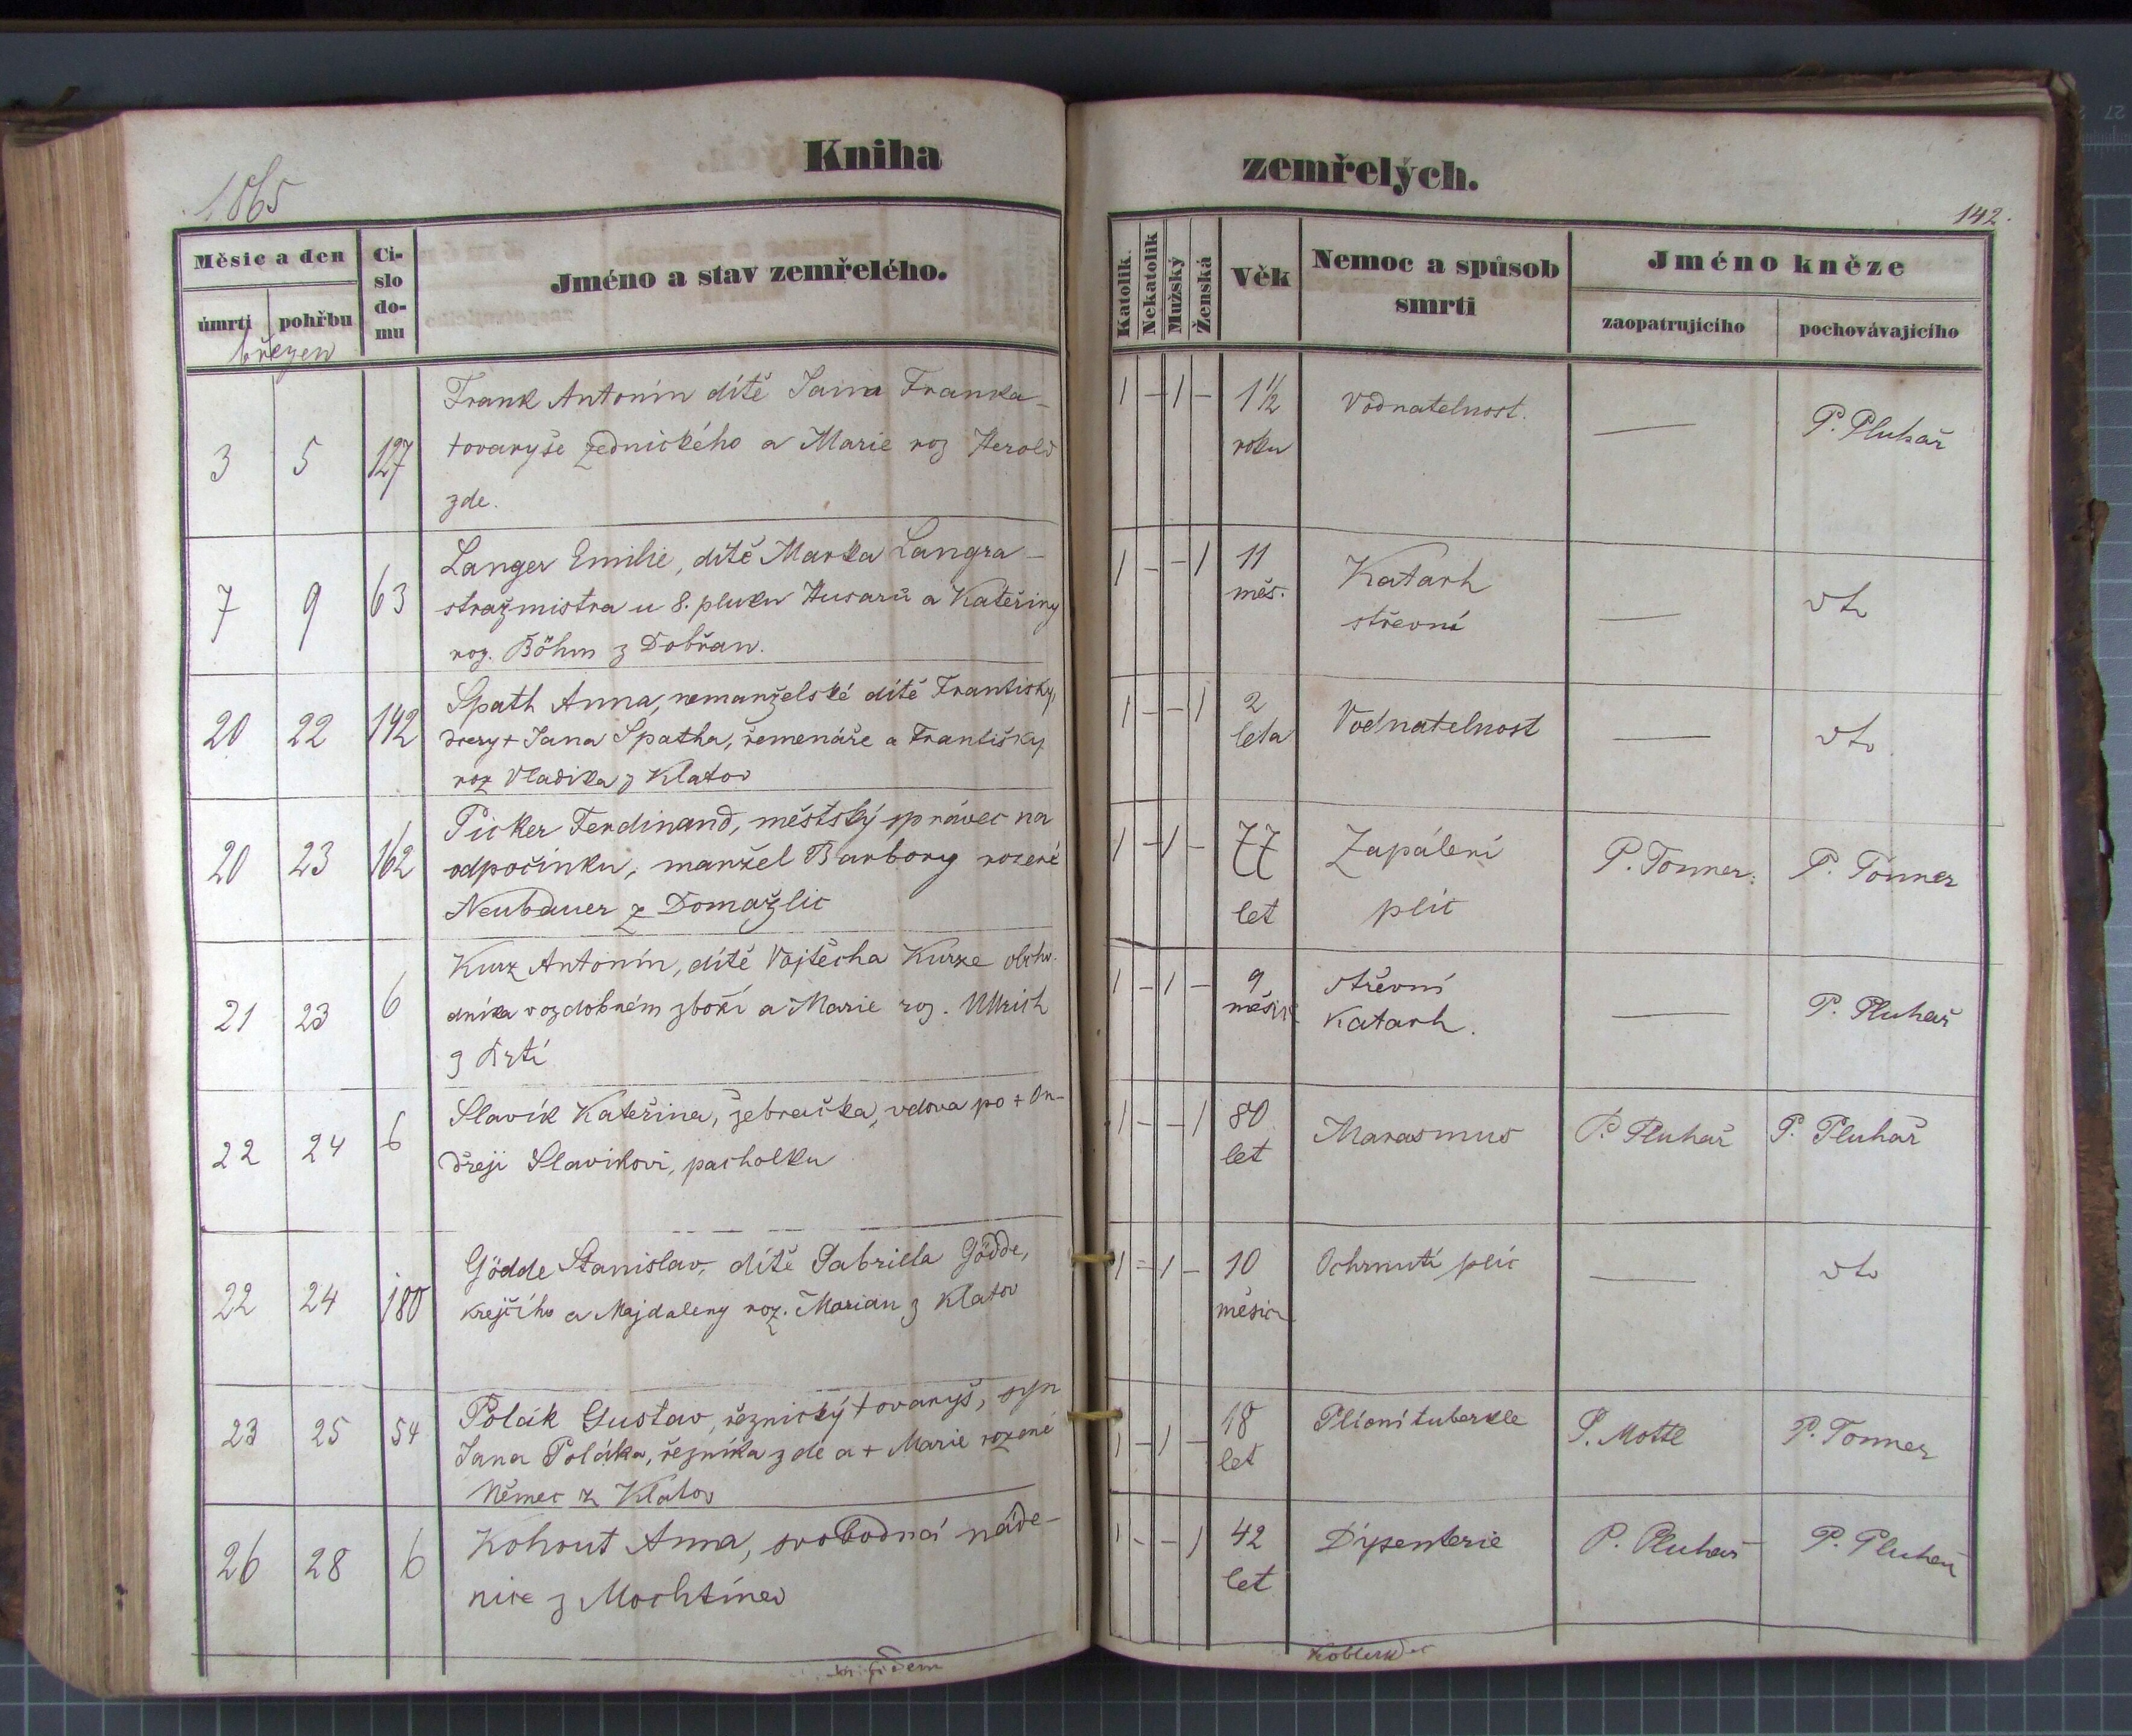 Kniha zemřelých.
1865
142.
Měsic a den
Či-
slo
do-
mu
Jméno a stav zemřelého.
Katolik.
Nekatolik
Mužský
Ženská
Věk
Nemoc a spůsob
smrti
Jméno kněze
úmrtí pohřbu
zaopatrujícího pochovávajícího
březen
3 5 127
Frank Antonín dítě Jana Franka -
tovaryše zednického a Marie roz Herold
zde.
1 - 1 - 1 1/2
roku
Vodnatelnost. —
P. Pluhař
7 9 63
Langer Emilie, dítě Marka Langra -
stražmistra u 8. pluku Husarů a Kateřiny
roz. Böhm z Dobřan.
1 - - 1 11
měs.
Katarh
střevní —
dto
20 22 142
Spath Anna, nemanželské dítě Františky,
dcery + Jana Spatha, řemenáře a Františky
roz Vladika z Klatov
1 - - 1 2
leta
Vodnatelnost —
dto
20 23 162
Picker Ferdinand, městský správec na
odpočinku, manžel Barbory rozené
Neubauer z Domažlic
1 - 1 - 77
let
Zapálení
plic
P. Tonner. P. Tonner
21 23 6
Kurz Antonín, dítě Vojtěcha Kurze obcho-
dníka v ozdobném zboží a Marie roz. Ullrich
z
1 - 1 - 9
měsíc
střevní
Katarh. —
P. Pluhař
22 24 6
Slavík Kateřina, žebračka, vdova po + On-
dřeji Slavíkovi, pacholku
1 - - 1 80
let
Marasmus
P. Pluhař P. Pluhař
22 24 180
Gödde Stanislav, dítě Gabriella Gödde,
krejčího a Majdaleny roz. Marian z Klatov
1 - 1 - 10
měsíc
Ochrnutí plic —
dto
23 25 54
Polák Gustav, řeznický tovaryš, syn
Jana Poláka, řezníka zde a + Marie rozené
Němec z Klatov
1 - 1 - 18
let
Plícní tuberkle
P. Mottl P. Tonner
26 28 6
Kohout Anna, svobodná náde-
nice z Mochtínev
1 - - 1 42
let
Dysenterie
P. Pluhař P. Pluhař